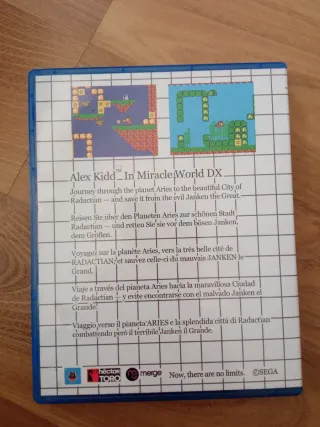 Alex Kidd™ In Miracle World DX
Journey through the planet Aries to the beautiful City of
Radactian — and save it from the evil Janken the Great.
Reisen Sie über den Planeten Aries zur schönen Stadt
Radactian — und retten Sie sie vor dem bösen Janken,
dem Großen.
Voyagez sur la planète Aries, vers la très belle cité de
RADACTIAN, et sauvez celle-ci du mauvais JANKEN le
Grand.
Viaje a través del planeta Aries hacia la maravillosa Ciudad
de Radactian — y evite encontrarse con el malvado Janken el
Grande.
Viaggio verso il pianeta ARIES e la splendida città di Radactian
combattendo però il terribile Janken il Grande.
héctor TORO merge Now, there are no limits. ©SEGA